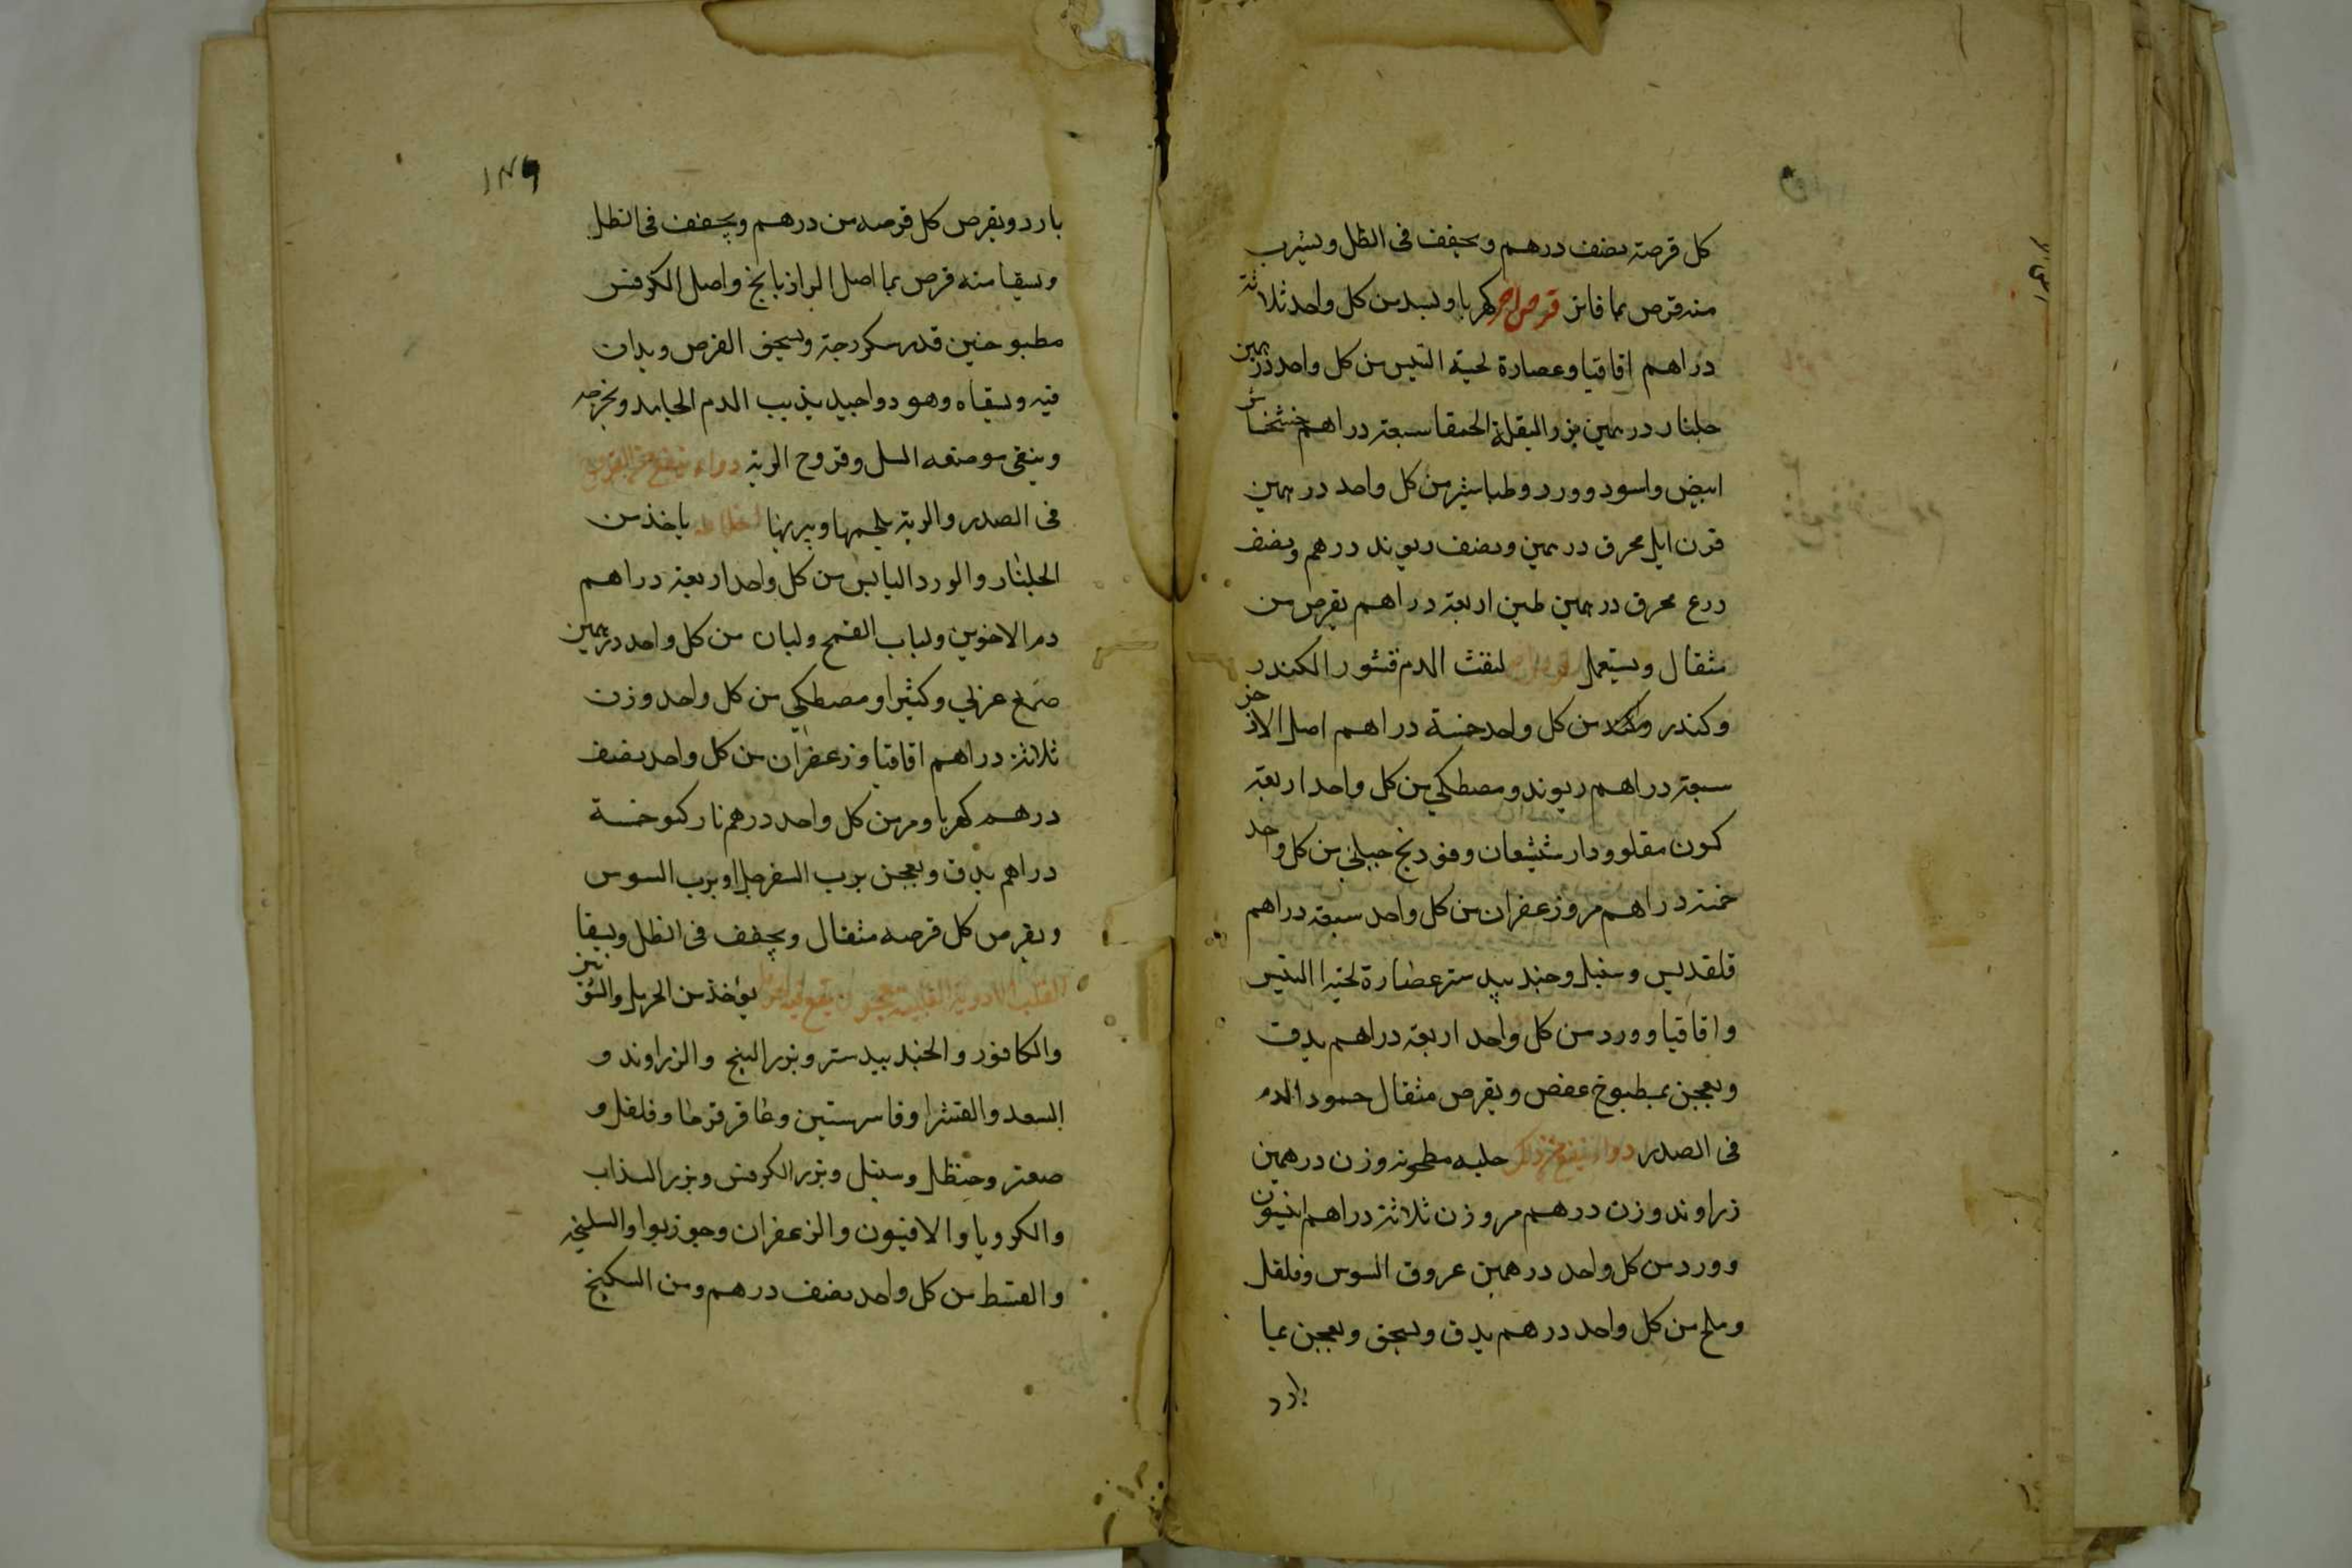 كل قرصة نصف درهم ويجفف فى الظل ويشرب
منه قرص بما فاتر قرص اخر كهربا وبسد من كل واحد ثلاثة
دراهم اقاقيا وعصارة لحية التيس من كل واحد درهمين
جلنار درهمين بزر البقلة الحمقا سبعة دراهم خشخاش
ابيض واسود وورد وطباشير من كل واحد درهمين
قرن ايل محرق درهمين ونصف ريوند درهم ونصف
ودع محرق درهمين طين اربعة دراهم يقرص من
مثقال ويستعمل لنفث الدم قشور الكندر
وكندر من كل واحد خمسة دراهم اصل الاذخر
سبعة دراهم ريوند ومصطكي من كل واحد اربعة
كمون مقلو ودارشيشعان وفودنج جبلى من كل واحد
خمسة دراهم مر وزعفران من كل واحد سبعة دراهم
قلقديس وسنبل وجندبيدستر عصارة لحية التيس
واقاقيا وورد من كل واحد اربعة دراهم يدق
ويعجن بمطبوخ عفص ويقرص مثقال جمود الدم
فى الصدر دوا ينفع من ذلك حلبه مطحونه وزن درهمين
زراوند وزن درهم مر وزن ثلاثة دراهم افيون
وورد من كل واحد درهمين عروق السوس وفلفل
وملح من كل واحد درهم يدق ويسحق ويعجن بما
بارد
١٤٩
بارد ويقرص كل قرصه من درهم ويجفف فى الظل
ويسقا منه قرص بما اصل الرازيانج واصل الكرفس
مطبوخين قدر سكرجة ويسحق القرص ويداف
فيه ويسقاه وهو دوا جيد يذيب الدم الجامد ويخرجه
وينقى موضعه السل وقروح الرية دواء ينفع من القروح
فى الصدر والرية يلحمها ويبريها اخلاطه ياخذ من
الجلنار والورد اليابس من كل واحد اربعة دراهم
دم الاخوين ولباب القمح ولبان من كل واحد درهمين
صمغ عربي وكثيرا ومصطكي من كل واحد وزن
ثلاثة دراهم اقاقيا وزعفران من كل واحد نصف
درهم كهربا ومر من كل واحد درهم ناركيو خمسة
دراهم يدق ويعجن برب السفرجل او برب السوس
ويقرص كل قرصه مثقال ويجفف فى الظل ويسقا
القلب الادوية القلبيه معجون يقع يوخذ من الحرمل والشونيز
والكافور والجندبيدستر وبزر البنج والزراوند و
السعد والفشرا وفاسرستين وعاقرقرحا وفلفل و
صعتر وحنظل وسنبل وبزر الكرفس وبزر السذاب
والكرويا والافيون والزعفران وجوزبوا والسليخه
والقسط من كل واحد نصف درهم ومن السكبنج